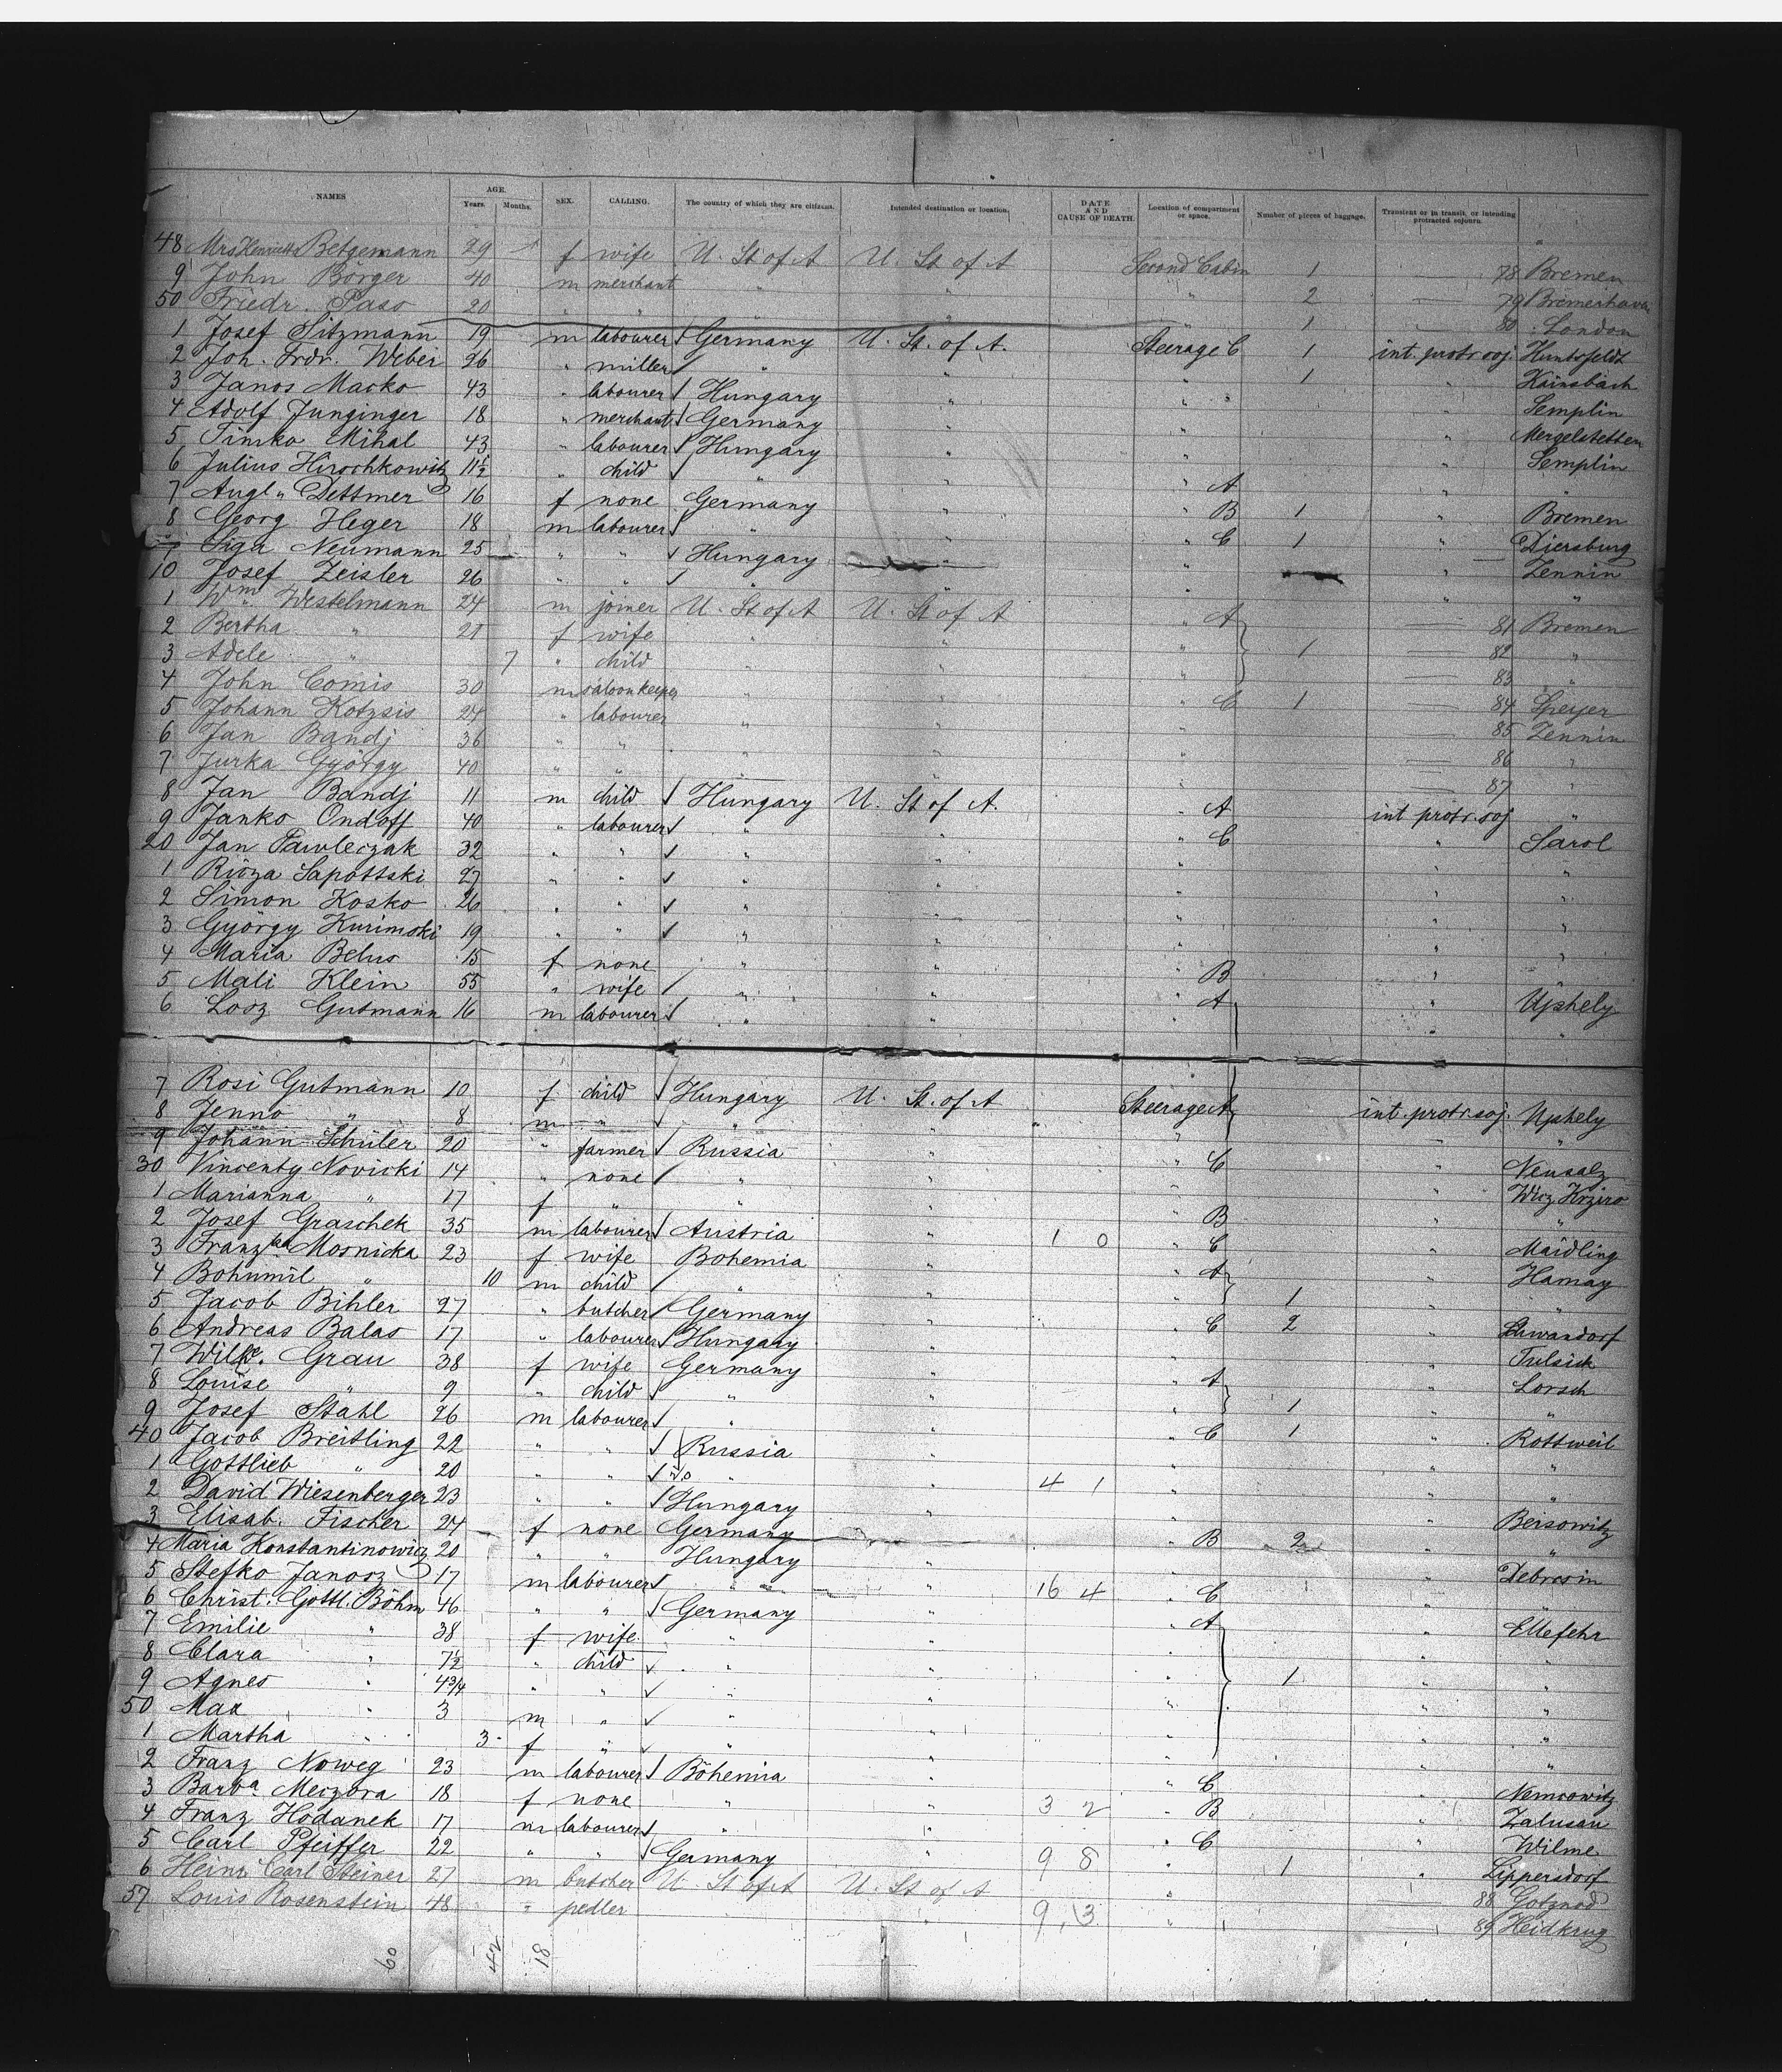 NAMES AGE. Years. Months. SEX. CALLING. The country of which they are citizens. Intended destination or location. DATE AND CAUSE OF DEATH. Location of compartment or space. Number of pieces of baggage. Transient or in transit, or intending protracted sojourn.
48 Mrs Henriette Betgemann 29 f wife U. St of A U. St of A Second Cabin 1 78 Bremen
9 John Börger 40 m merchant " " " 2 79 Bremerhaven
50 Friedr. Paso 20 " " " " " 1 80 London
1 Josef Sitzmann 19 m labourer Germany U. St. of A. Steerage C 1 int. protr. soj. Huntsfeldt
2 Joh. Frdr. Weber 26 " miller " " " 1 " Kainsbach
3 Janos Macko 43 " labourer Hungary " " " " Semplin
4 Adolf Junginger 18 " merchant Germany " " " Mergelstetten
5 Timko Mihal 43 " labourer Hungary " " " Semplin
6 Julius Hirschkowitz 11½ " child " " " A " "
7 Augt" Dettmer 16 f none Germany " " B 1 " Bremen
8 Georg Heger 18 m labourer " " " C 1 " Diersburg
9 Siga Neumann 25 " " Hungary " " " Zennin
10 Josef Zeisler 26 " " " " " " "
1 Wm Westelmann 24 m joiner U. St of A U. St of A " A 81 Bremen
2 Bertha " 21 f wife " " " 1 82 "
3 Adele " 7 " child " " " 83 "
4 John Comis 30 m saloonkeeper " " " C 1 84 Speyer
5 Johann Kotzsis 24 " labourer " " " 85 Zennin
6 Jan Bandj 36 " " " " " 86 "
7 Jurka György 40 " " " " " 87 "
8 Jan Bandj 11 m child Hungary U. St of A. " A int protr. soj "
9 Janko Ondoff 40 " labourer " " " C " Sarol
20 Jan Pawleczak 32 " " " " " " "
1 Rioza Sapottski 27 " " " " " " "
2 Simon Kosko 26 " " " " " " "
3 György Kurimski 19 " " " " " " "
4 Maria Belus 15 f none " " " B " "
5 Mali Klein 55 " wife " " " A " Ujshely
6 Looz Gutmann 16 m labourer " " " " "
7 Rosi Gutmann 10 f child Hungary U. St. of A Steerage A int. protr. soj. Ujshely
8 Jenno " 8 m " " " " " "
9 Johann Schüler 20 " farmer Russia " " C " Neusalz
30 Vincenty Novicki 14 " none " " " " Wicz Krziro
1 Marianna " 17 f " " " " B " "
2 Josef Graschek 35 m labourer Austria " 1 0 " C " Maidling
3 Franzka Mosnicka 23 f wife Bohemia " " A " Hamay
4 Bohumil " 10 m child " " " 1 " "
5 Jacob Bihler 27 " butcher Germany " " C 2 " Schwandorf
6 Andreas Balas 17 " labourer Hungary " " " Tulsick
7 Wilhe. Grau 38 f wife Germany " " A " Lorsch
8 Louise " 9 " child " " " 1 " "
9 Josef Stahl 26 m labourer " " " C 1 " Rottweil
40 Jacob Breitling 22 " " Russia " " " "
1 Gottlieb " 20 " " do " " 4 1 " " "
2 David Wiesenberger 23 " " Hungary " " " Beisowitz
3 Elisab. Fischer 24 f none Germany " " B 2 " "
4 Maria Konstantinowicz 20 " " Hungary " " " Debrosin
5 Stefko Janosz 17 m labourer " " 16 4 " C " "
6 Christ. Gottl. Böhm 46 " " Germany " " A " Ellefehr
7 Emilie " 38 f wife " " " " "
8 Clara " 7½ " child " " " 1 " "
9 Agnes " 4¾ " " " " " " "
50 Max " 3 m " " " " " "
1 Martha " 3 f " " " " " "
2 Franz Noweg 23 m labourer Böhemia " " C " Nemcowitz
3 Barba. Meczora 18 f none " " 3 2 " B " Zalusan
4 Franz Hodanek 17 m labourer " " " C " Wilme
5 Carl Pfeiffer 22 " " Germany " 9 8 " 1 " Lippersdorf
6 Heinr. Carl Steiner 27 m butcher U. St of A U. St of A " 88 Gotznod
57 Louis Rosenstein 48 " pedler " " 9 13 " 89 Heidkrug
60 42 18